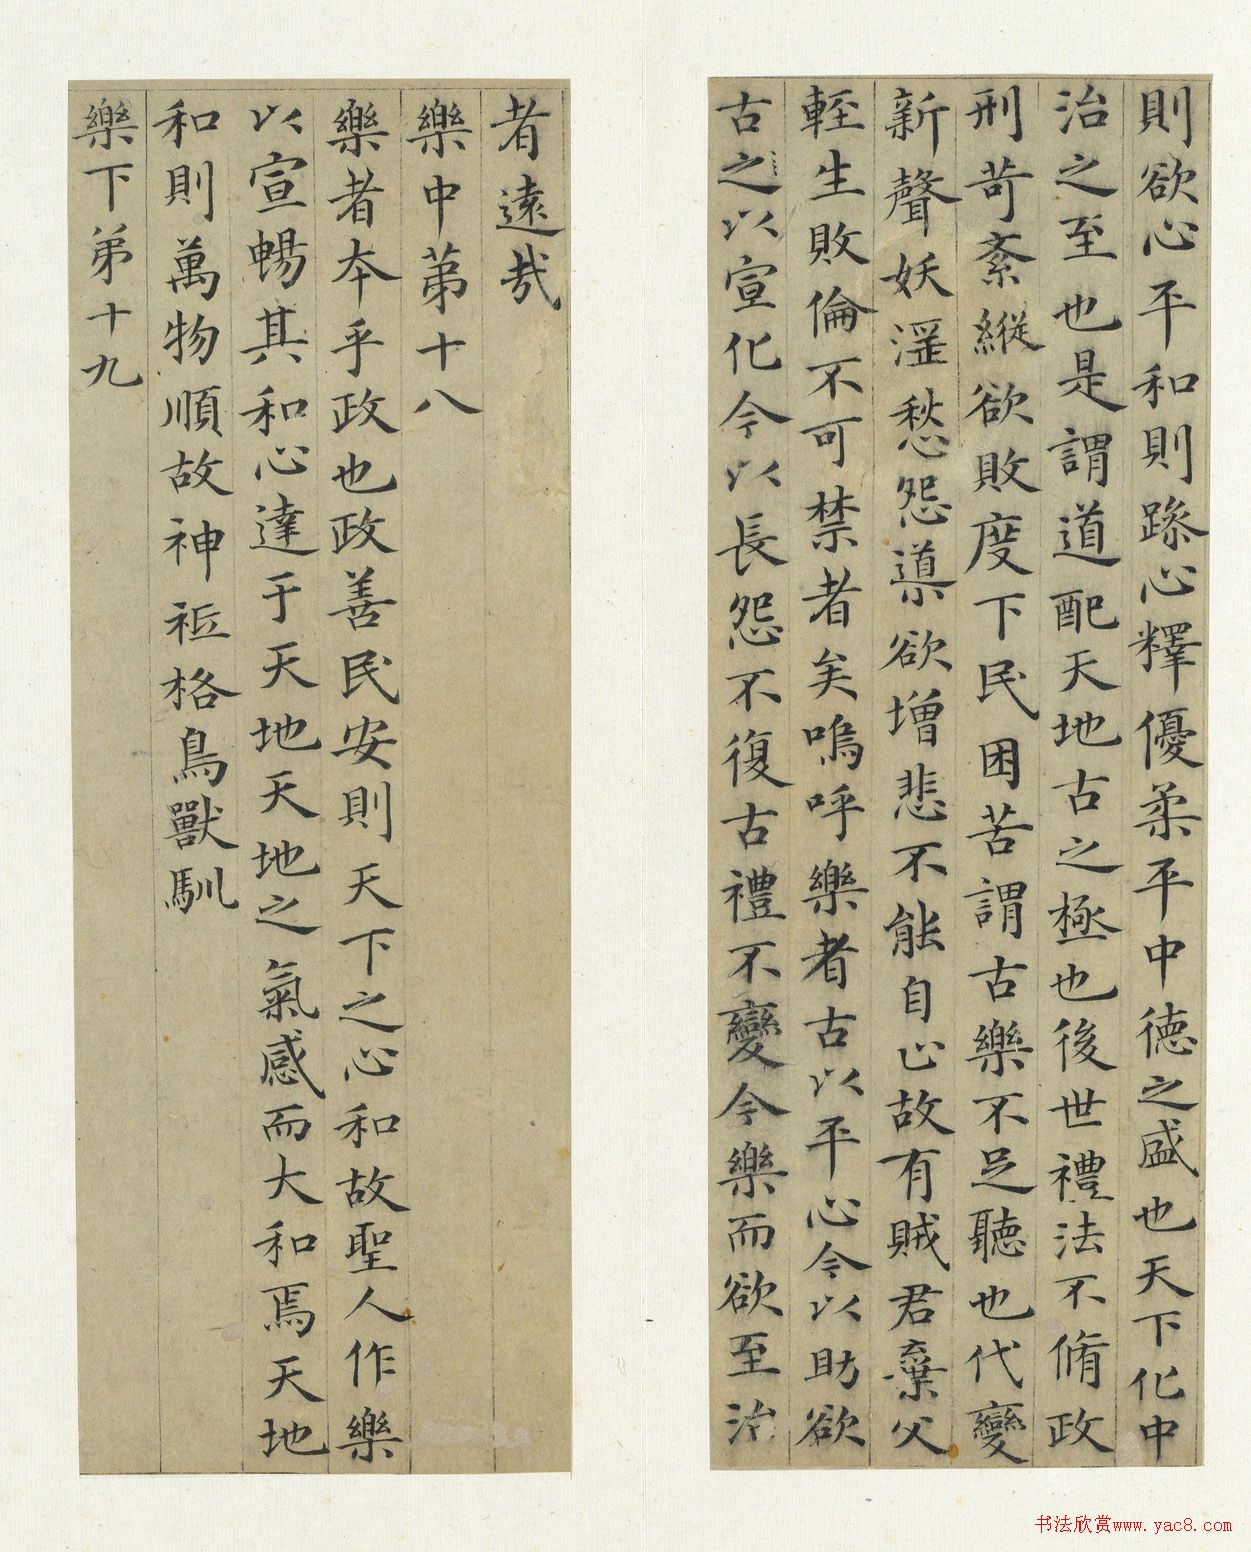 則欲心平和則躁心釋優柔平中德之盛也天下化中
治之至也是謂道配天地古之極也後世禮法不脩政
刑苛紊縱欲敗度下民困苦謂古樂不足聽也代變
新聲妖淫愁怨導欲增悲不能自止故有賊君棄父
輕生敗倫不可禁者矣嗚呼樂者古以平心今以助欲
古之以宣化今以長怨不復古禮不變今樂而欲至治
者遠哉
樂中第十八
樂者本乎政也政善民安則天下之心和故聖人作樂
以宣暢其和心達于天地天地之氣感而大和焉天地
和則萬物順故神祇格鳥獸馴
樂下第十九
书法欣赏www.yac8.com